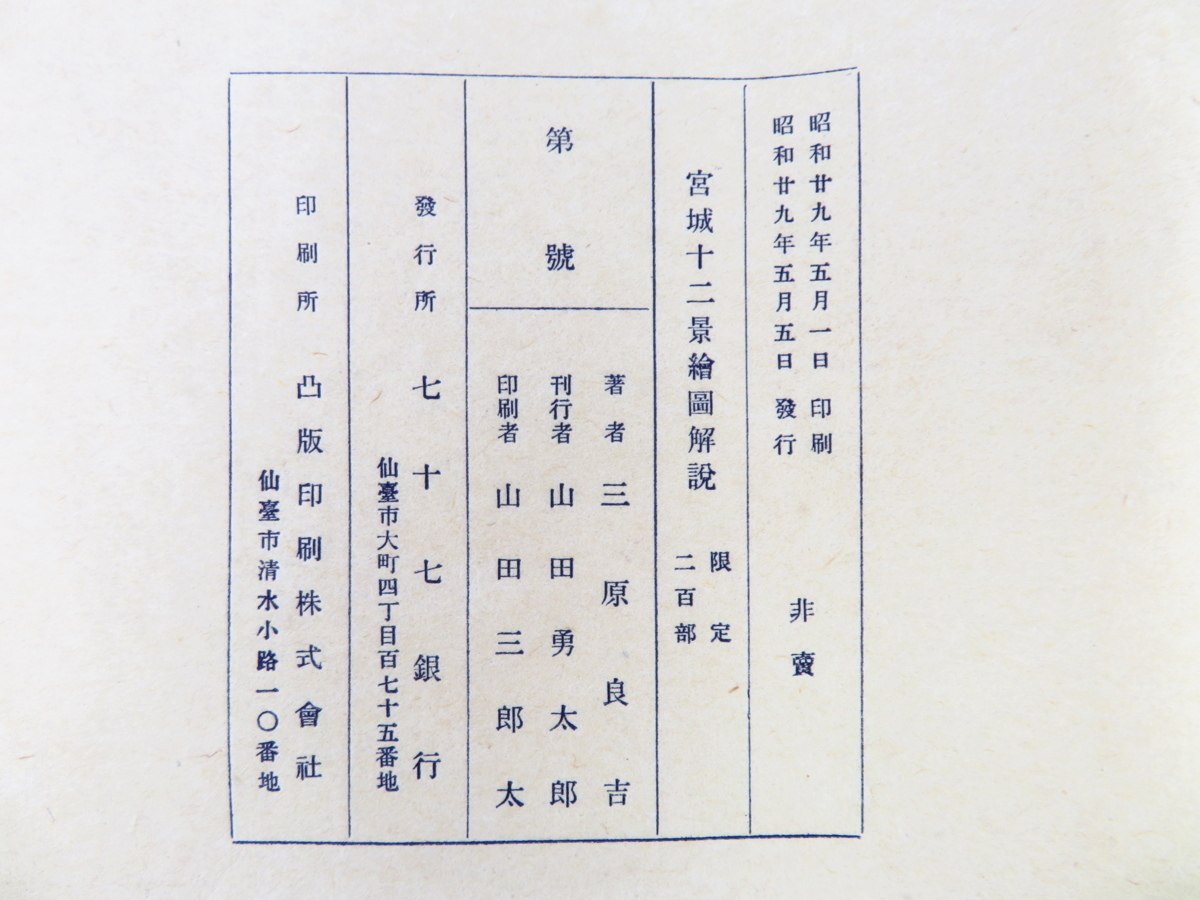 昭和廿九年五月一日 印刷
昭和廿九年五月五日 發行
非賣
宮城十二景繪圖解說
限定
二百部
第 號
著者 三原良吉
刊行者 山田勇太郎
印刷者 山田三郎太
發行所 七十七銀行
仙臺市大町四丁目百七十五番地
印刷所 凸版印刷株式會社
仙臺市清水小路一〇番地